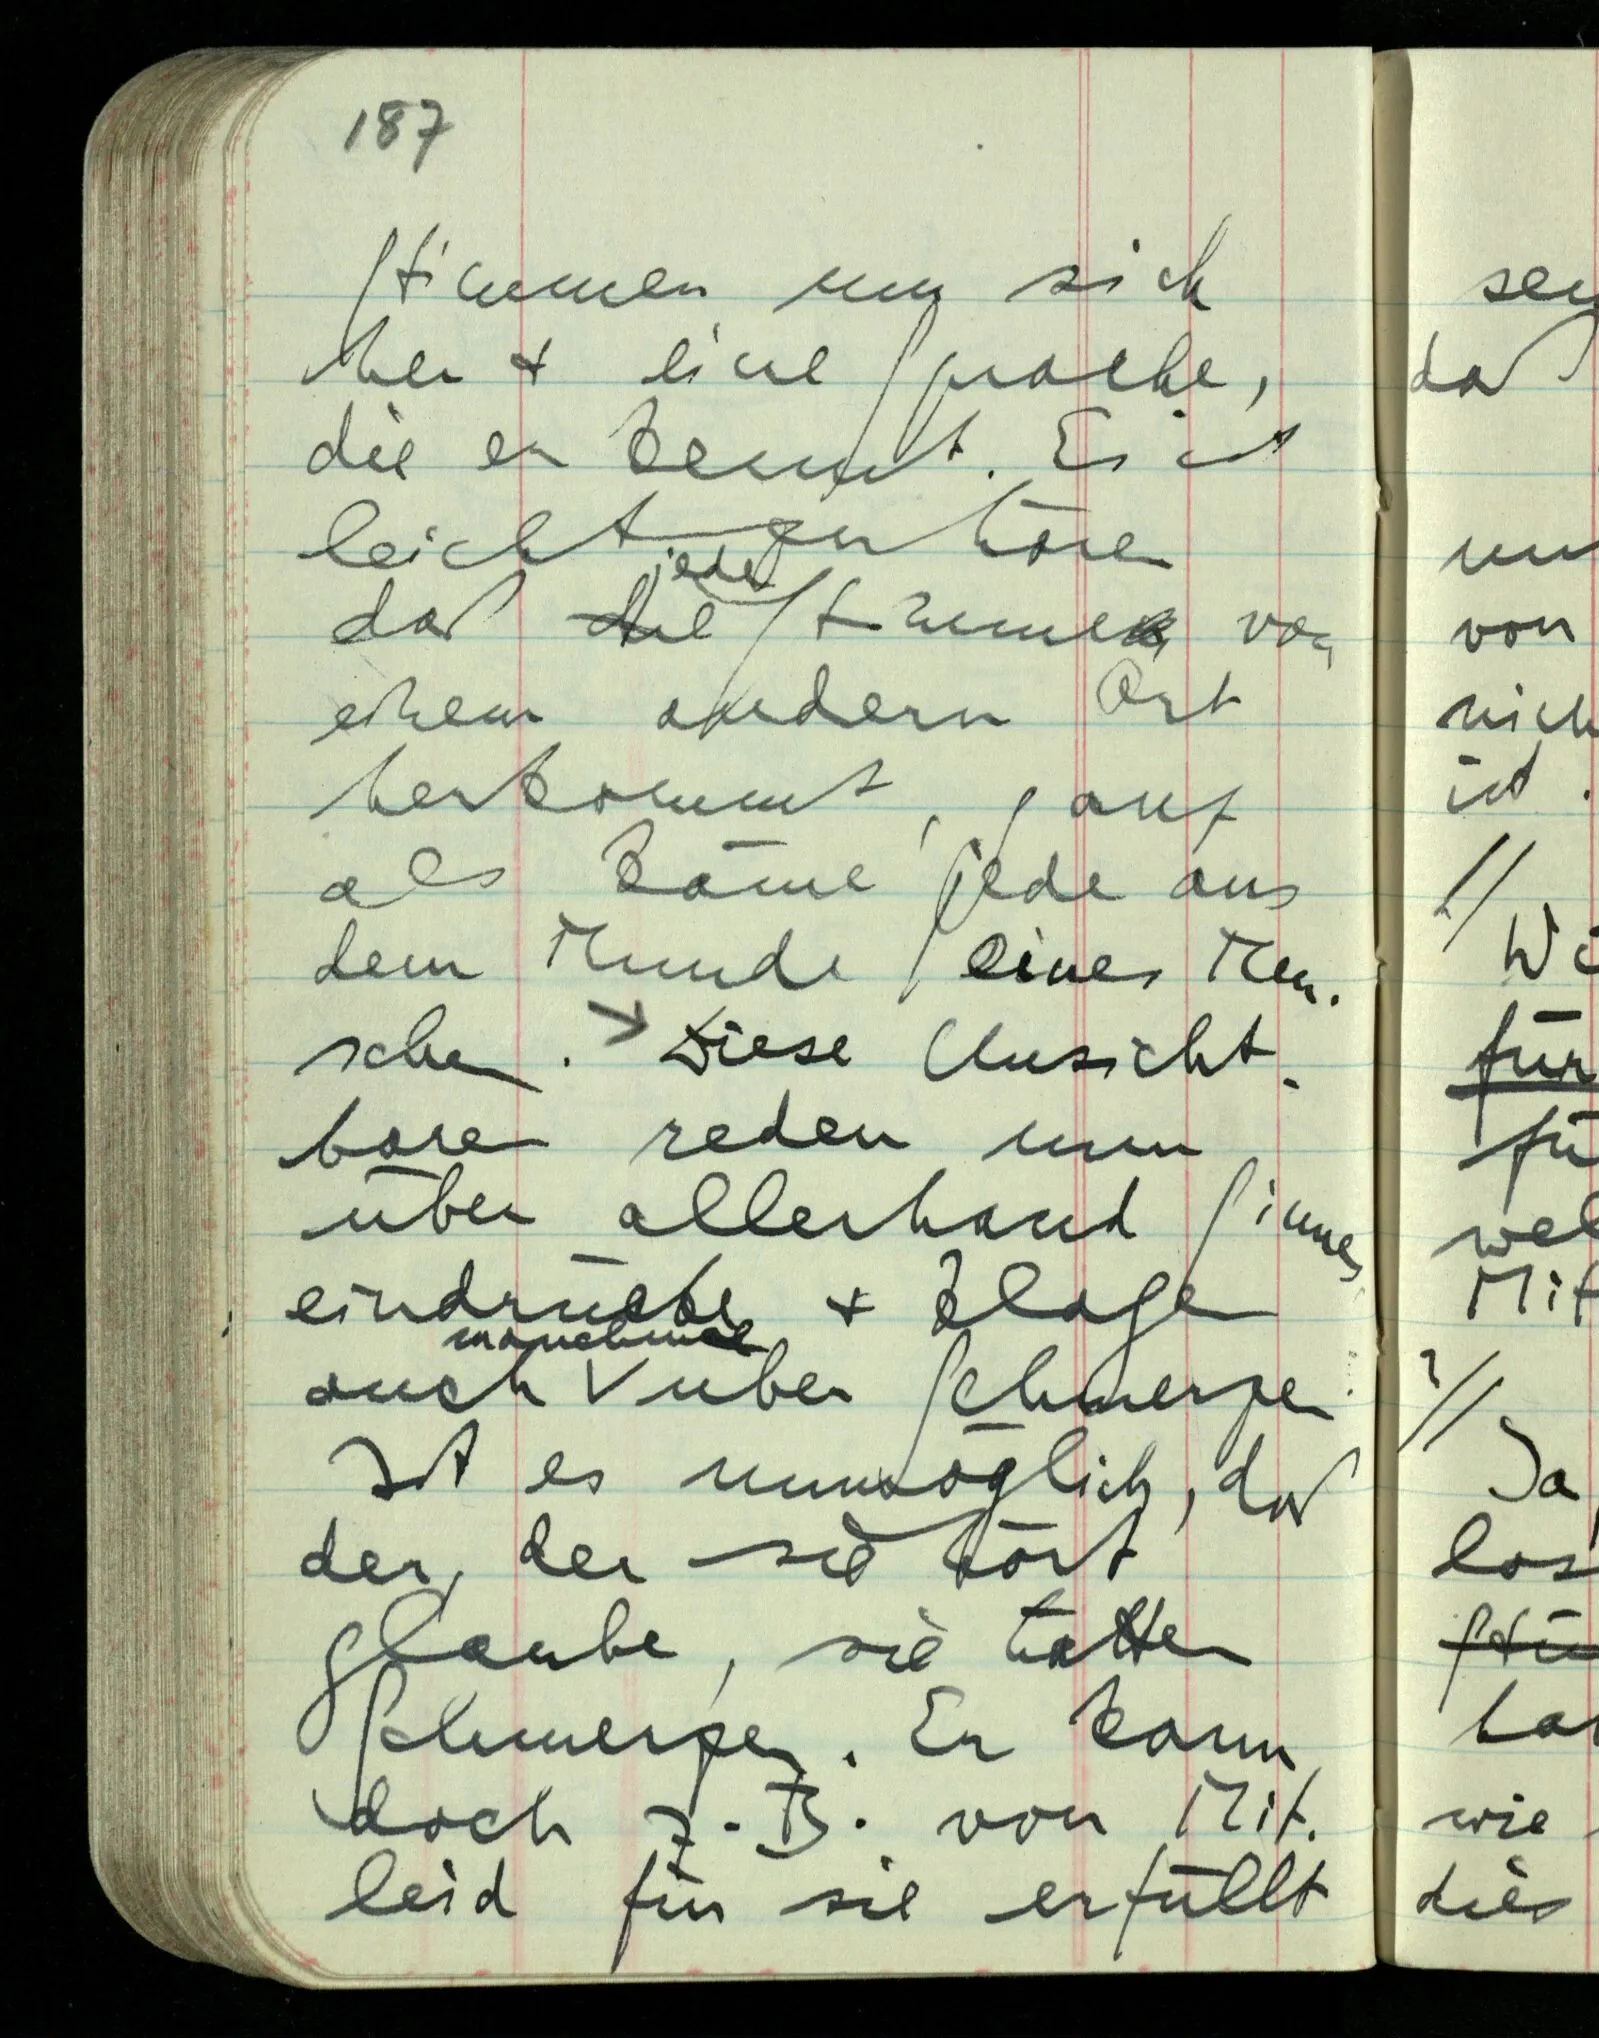 187
Stimmen um sich
her + eine Sprache,
die er kennt. Es ist
leicht zu hören
jede
daß die Stimmen von
einem andern Ort
herkommt, auf
als käme jede aus
dem Munde eines Men-
schen. > Diese Unsicht-
baren reden nun
über allerhand Sinnes-
eindrücke + klagen
manchmal
auch V über Schmerzen
Ist es unmöglich, daß
der, der sie hört
glaube, sie hätten
Schmerzen. Er kann
doch z.B. von Mit-
leid für sie erfüllt
sey
daß
un
von
nich
ist.
//
Wi
für
fü
wel
Mit
?//
Ja,
los
ha
wie
dies